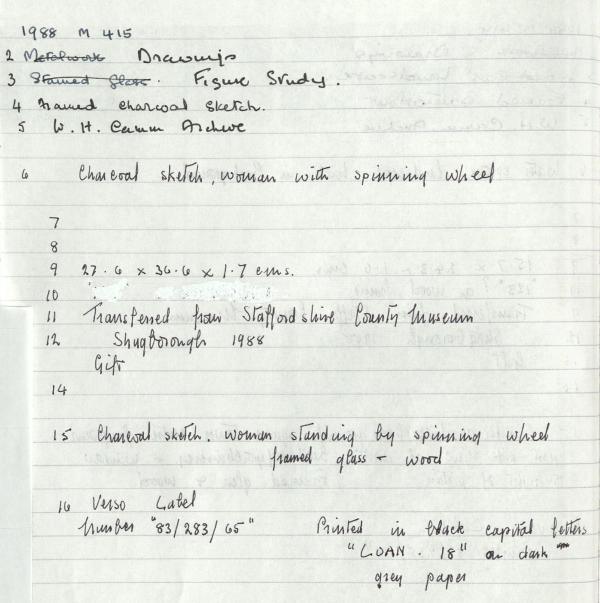 1988 M 415
2 Metalwork Drawings
3 Stained Glass. Figure Study.
4 Framed charcoal sketch.
5 W. H. Camm Archive
6 Charcoal sketch, woman with spinning wheel
7
8
9 27.6 x 36.6 x 1.7 cms.
10
11 Transferred from Staffordshire County Museum
12 Shugborough 1988
Gift
14
15 Charcoal sketch. woman standing by spinning wheel
framed glass - wood
16 Verso Label
Number "83/283/65" Printed in black capital letters
"LOAN . 18" on dark
grey paper